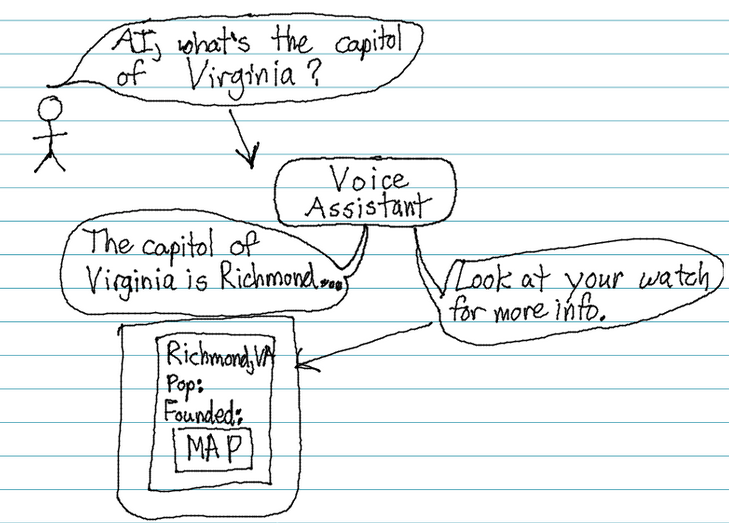 AI, what's the capitol
of Virginia?
Voice
Assistant
The capitol of
Virginia is Richmond....
Look at your watch
for more info.
Richmond, VA
Pop:
Founded:
MAP